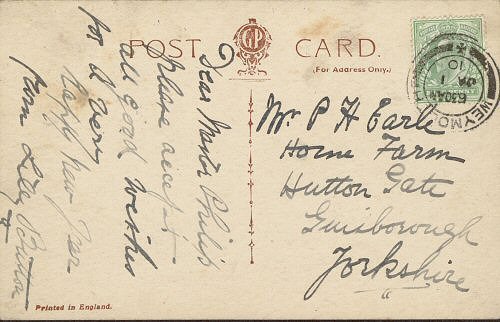 POST CARD.
(For Address Only.)
WEYMO
630AM
JA 1
10
Dear Master Philip
please accept
all good wishes
for a very
happy New Year
from
Mr P H Earle
Home Farm
Hutton Gate
Guisborough
Yorkshire
Printed in England.